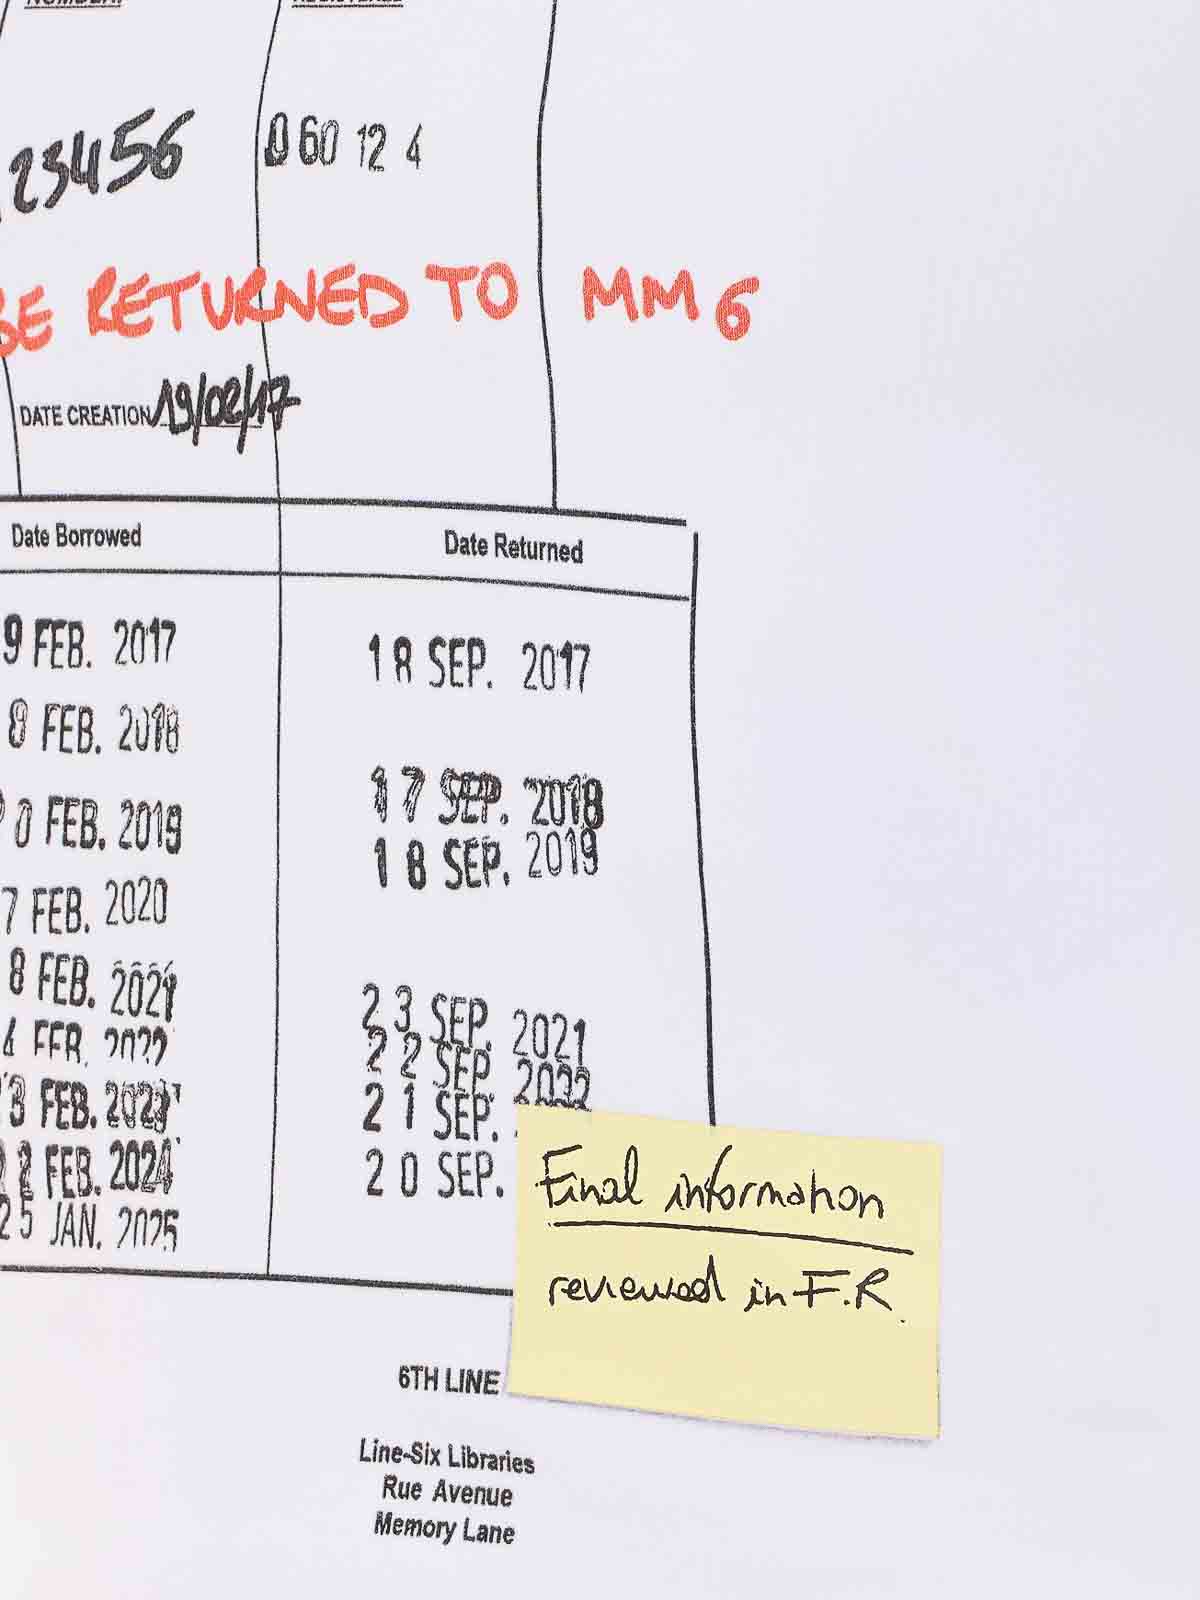 NUMBER: REGISTERED
23456 060 12 4
BE RETURNED TO MM6
DATE CREATION 19/02/17
Date Borrowed Date Returned
9 FEB. 2017 18 SEP. 2017
8 FEB. 2018 17 SEP. 2018
0 FEB. 2019 18 SEP. 2019
7 FEB. 2020
8 FEB. 2021 23 SEP. 2021
4 FEB. 2022 22 SEP 2022
3 FEB. 2023 21 SEP.
22 FEB. 2024 20 SEP.
25 JAN. 2025
Final information
reviewed in F.R.
6TH LINE
Line-Six Libraries
Rue Avenue
Memory Lane